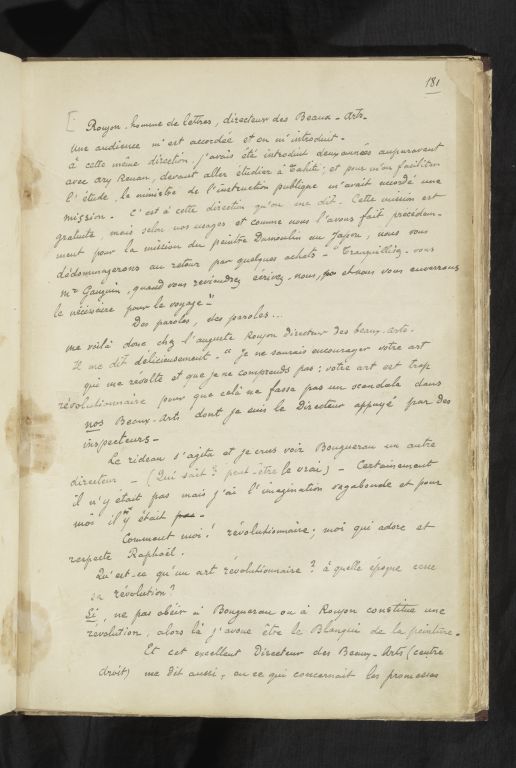 181
[ Roujon, homme de lettres, directeur des Beaux-Arts-
une audience m'est accordée et on m'introduit-
à cette même direction j'avais été introduit deux années auparavant
avec Ary Renan, devant aller étudier à Tahiti; et pour m'en faciliter
l'étude, le ministre de l'instruction publique m'avait accordé une
mission - C'est à cette direction qu'on me dit - Cette mission est
gratuite, mais selon nos usages et comme nous l'avons fait précédem-
ment pour la mission du peintre Dumoulin au Japon, nous vous
dédommagerons au retour par quelques achats - Tranquillisez-vous
Mr Gauguin, quand vous reviendrez écrivez-nous, et nous vous enverrons
le nécessaire pour le voyage"-
Des paroles, des paroles...
me voilà donc chez l'auguste Roujon directeur des beaux-arts-
Il me dit délicieusement - "Je ne saurais encourager votre art
qui me révolte et que je ne comprends pas: votre art est trop
révolutionnaire pour que celà ne fasse pas un scandale dans
nos Beaux-Arts dont je suis le Directeur appuyé par des
inspecteurs -
Le rideau s'agita et je crus voir Bouguereau un autre
directeur - (Qui sait? peut-être le vrai) - Certainement
il n'y était pas mais j'ai l'imagination vagabonde et pour
moi il y était pas-
Comment moi! révolutionnaire; moi qui adore et
respecte Raphaël.
Qu'est-ce qu'un art révolutionnaire? à quelle époque cesse
la révolution?
Si, ne pas obéir à Bouguereau ou à Roujon constitue une
révolution, alors là j'avoue être le Blanqui de la peinture-
Et cet excellent Directeur des Beaux-Arts (centre
droit) me dit aussi, en ce qui concernait les promesses